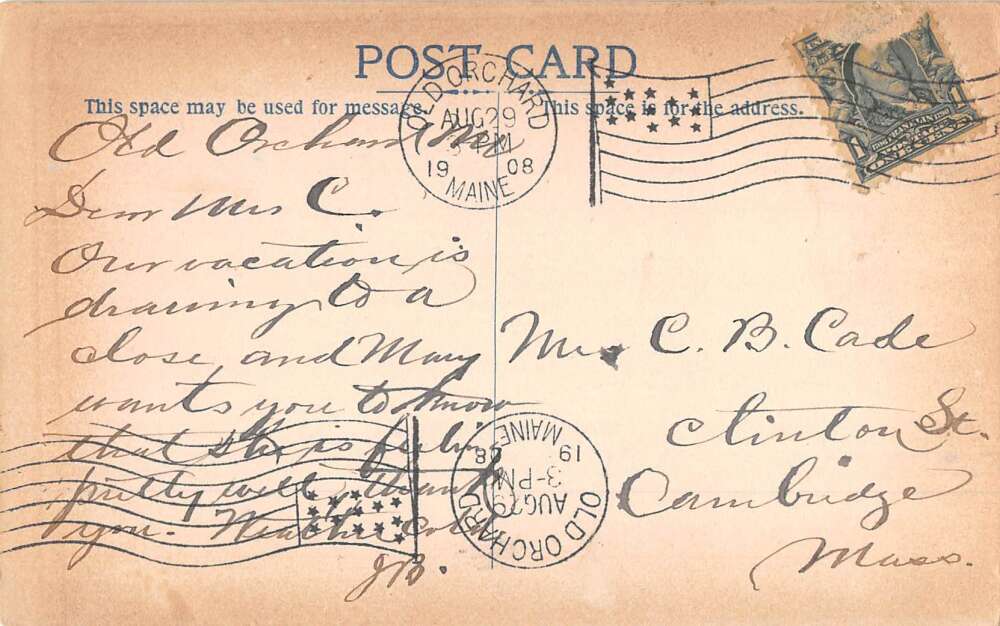 POST CARD
This space may be used for message. This space is for the address.
OLD ORCHARD
AUG 29
PM
1908
MAINE
FRANKLIN
POSTAGE
1 ONE CENT 1
Old Orchard Me
Dear Mrs C.
Our vacation is
drawing to a
close and Mary
wants you to know
that she is feeling
pretty well thank
you. Weather cold
JB.
Mrs C. B. Cade
Clinton St.
Cambridge
Mass.
OLD ORCHARD
AUG 29
3-PM
1908
MAINE